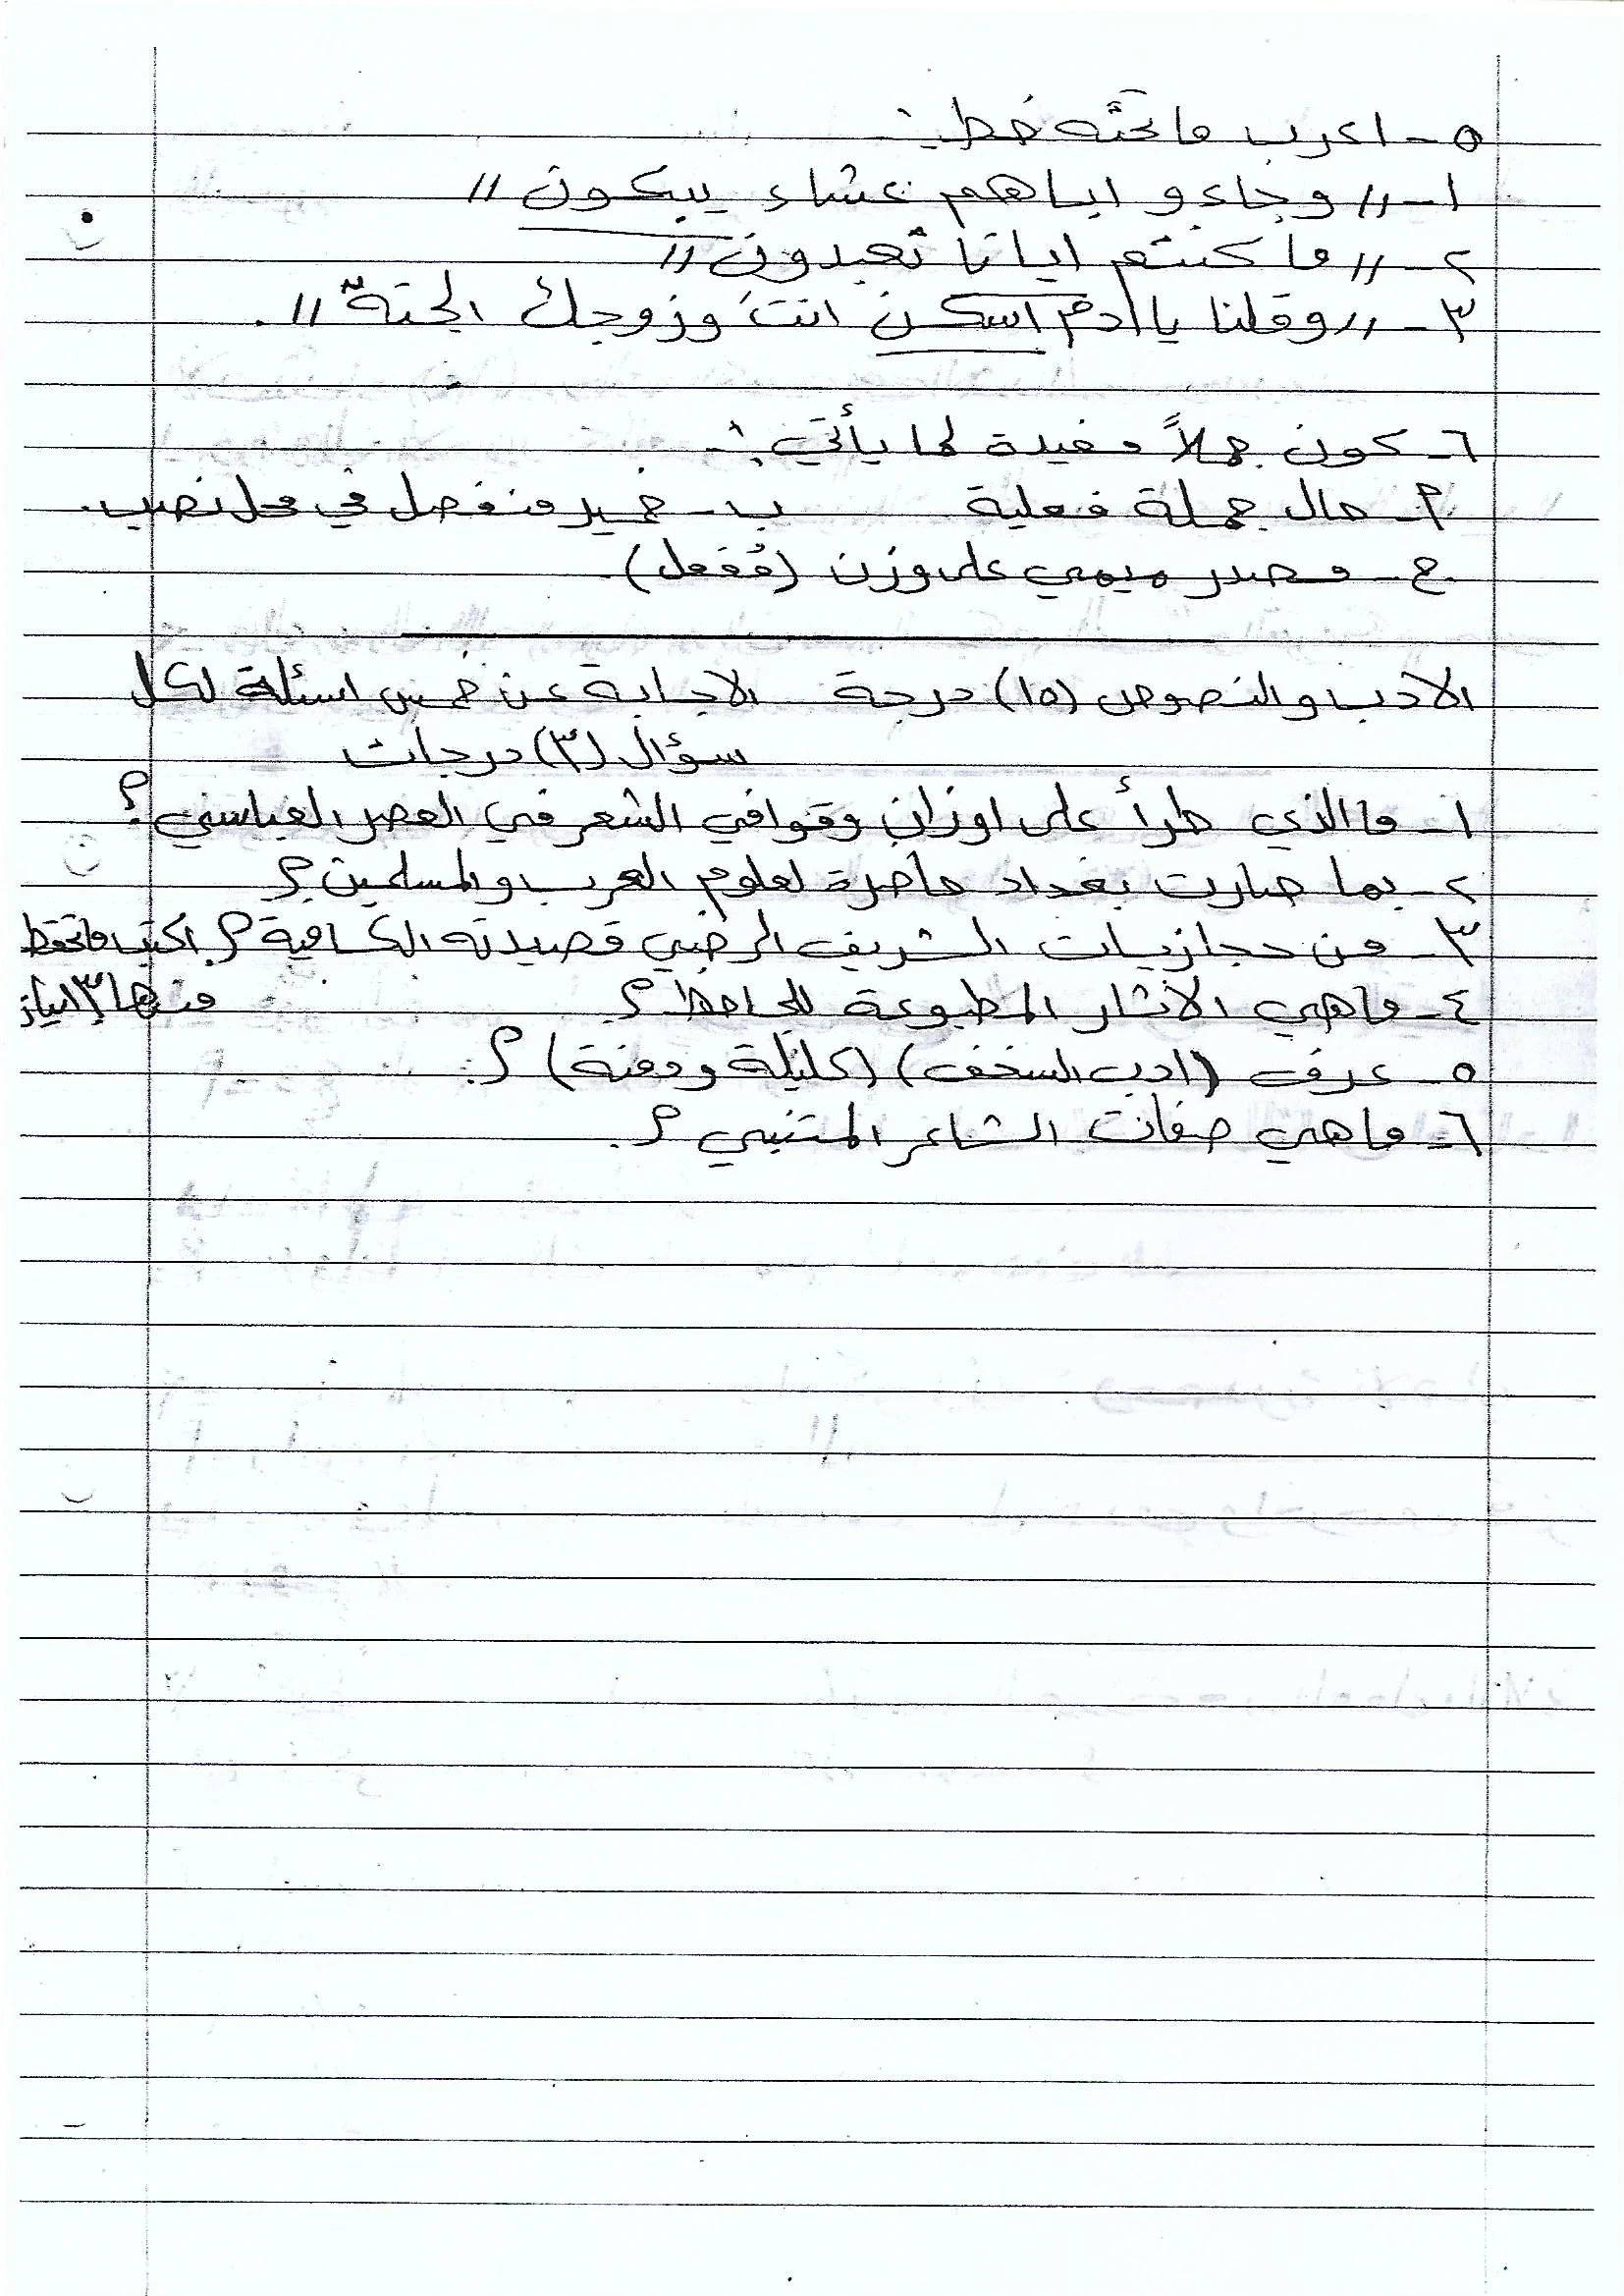 ٥- اعرب ما تحته خط :-
١- // وجاءو اباهم عشاء يبكون //
٢- // ما كنتم ايانا تعبدون //
٣- // وقلنا يا ادم اسكن انت وزوجك الجنة // .
٦- كون جملاً مفيدة لما يأتي :-
أ- حال جملة فعلية ب- ضمير منفصل في محل نصب .
ج- مصدر ميمي على وزن (مُفعل) .
الادب والنصوص (١٥) درجة الاجابة عن خمس اسئلة لكل
سؤال (٣) درجات
١- ما الذي طرأ على اوزان وقوافي الشعر في العصر العباسي ؟
٢- بما صارت بغداد حاضرة لعلوم العرب والمسلمين ؟
٣- من حجازيات الشريف الرضي قصيدته الكافية ؟ اكتب ما تحفظ
منها ٣ ابيات
٤- ما هي الآثار المطبوعة للجاحظ ؟
٥- عرف (ادب السخف) (كليلة ودمنة) ؟
٦- ما هي صفات الشاعر المتنبي ؟